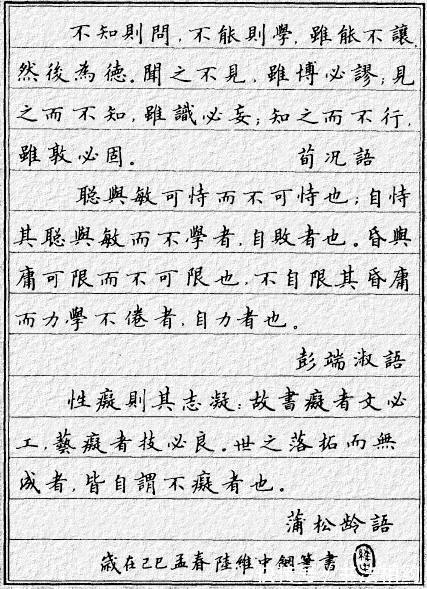 不知則問，不能則學，雖能不讓，
然後為德。聞之不見，雖博必謬；見
之而不知，雖識必妄；知之而不行，
雖敦必固。 荀况語
聪與敏可恃而不可恃也；自恃
其聪與敏而不學者，自敗者也。昏與
庸可限而不可限也，不自限其昏庸
而力學不倦者，自力者也。
彭端淑語
性癡則其志凝：故書癡者文必
工，藝癡者技必良。世之落拓而無
成者，皆自謂不癡者也。
蒲松龄語
歲在己巳孟春陸維中鋼筆書